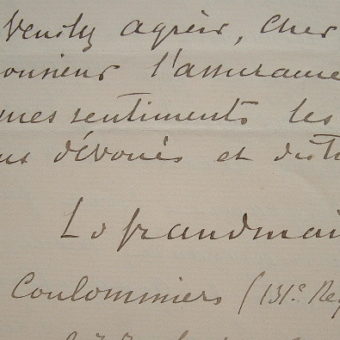 Veuillez agréer, Cher
onsieur l'assurance
mes sentiments les
us dévoués et dist
Coulommiers (131e Reg